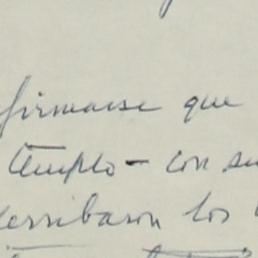 firmarse que
templo - con su
derribaron los